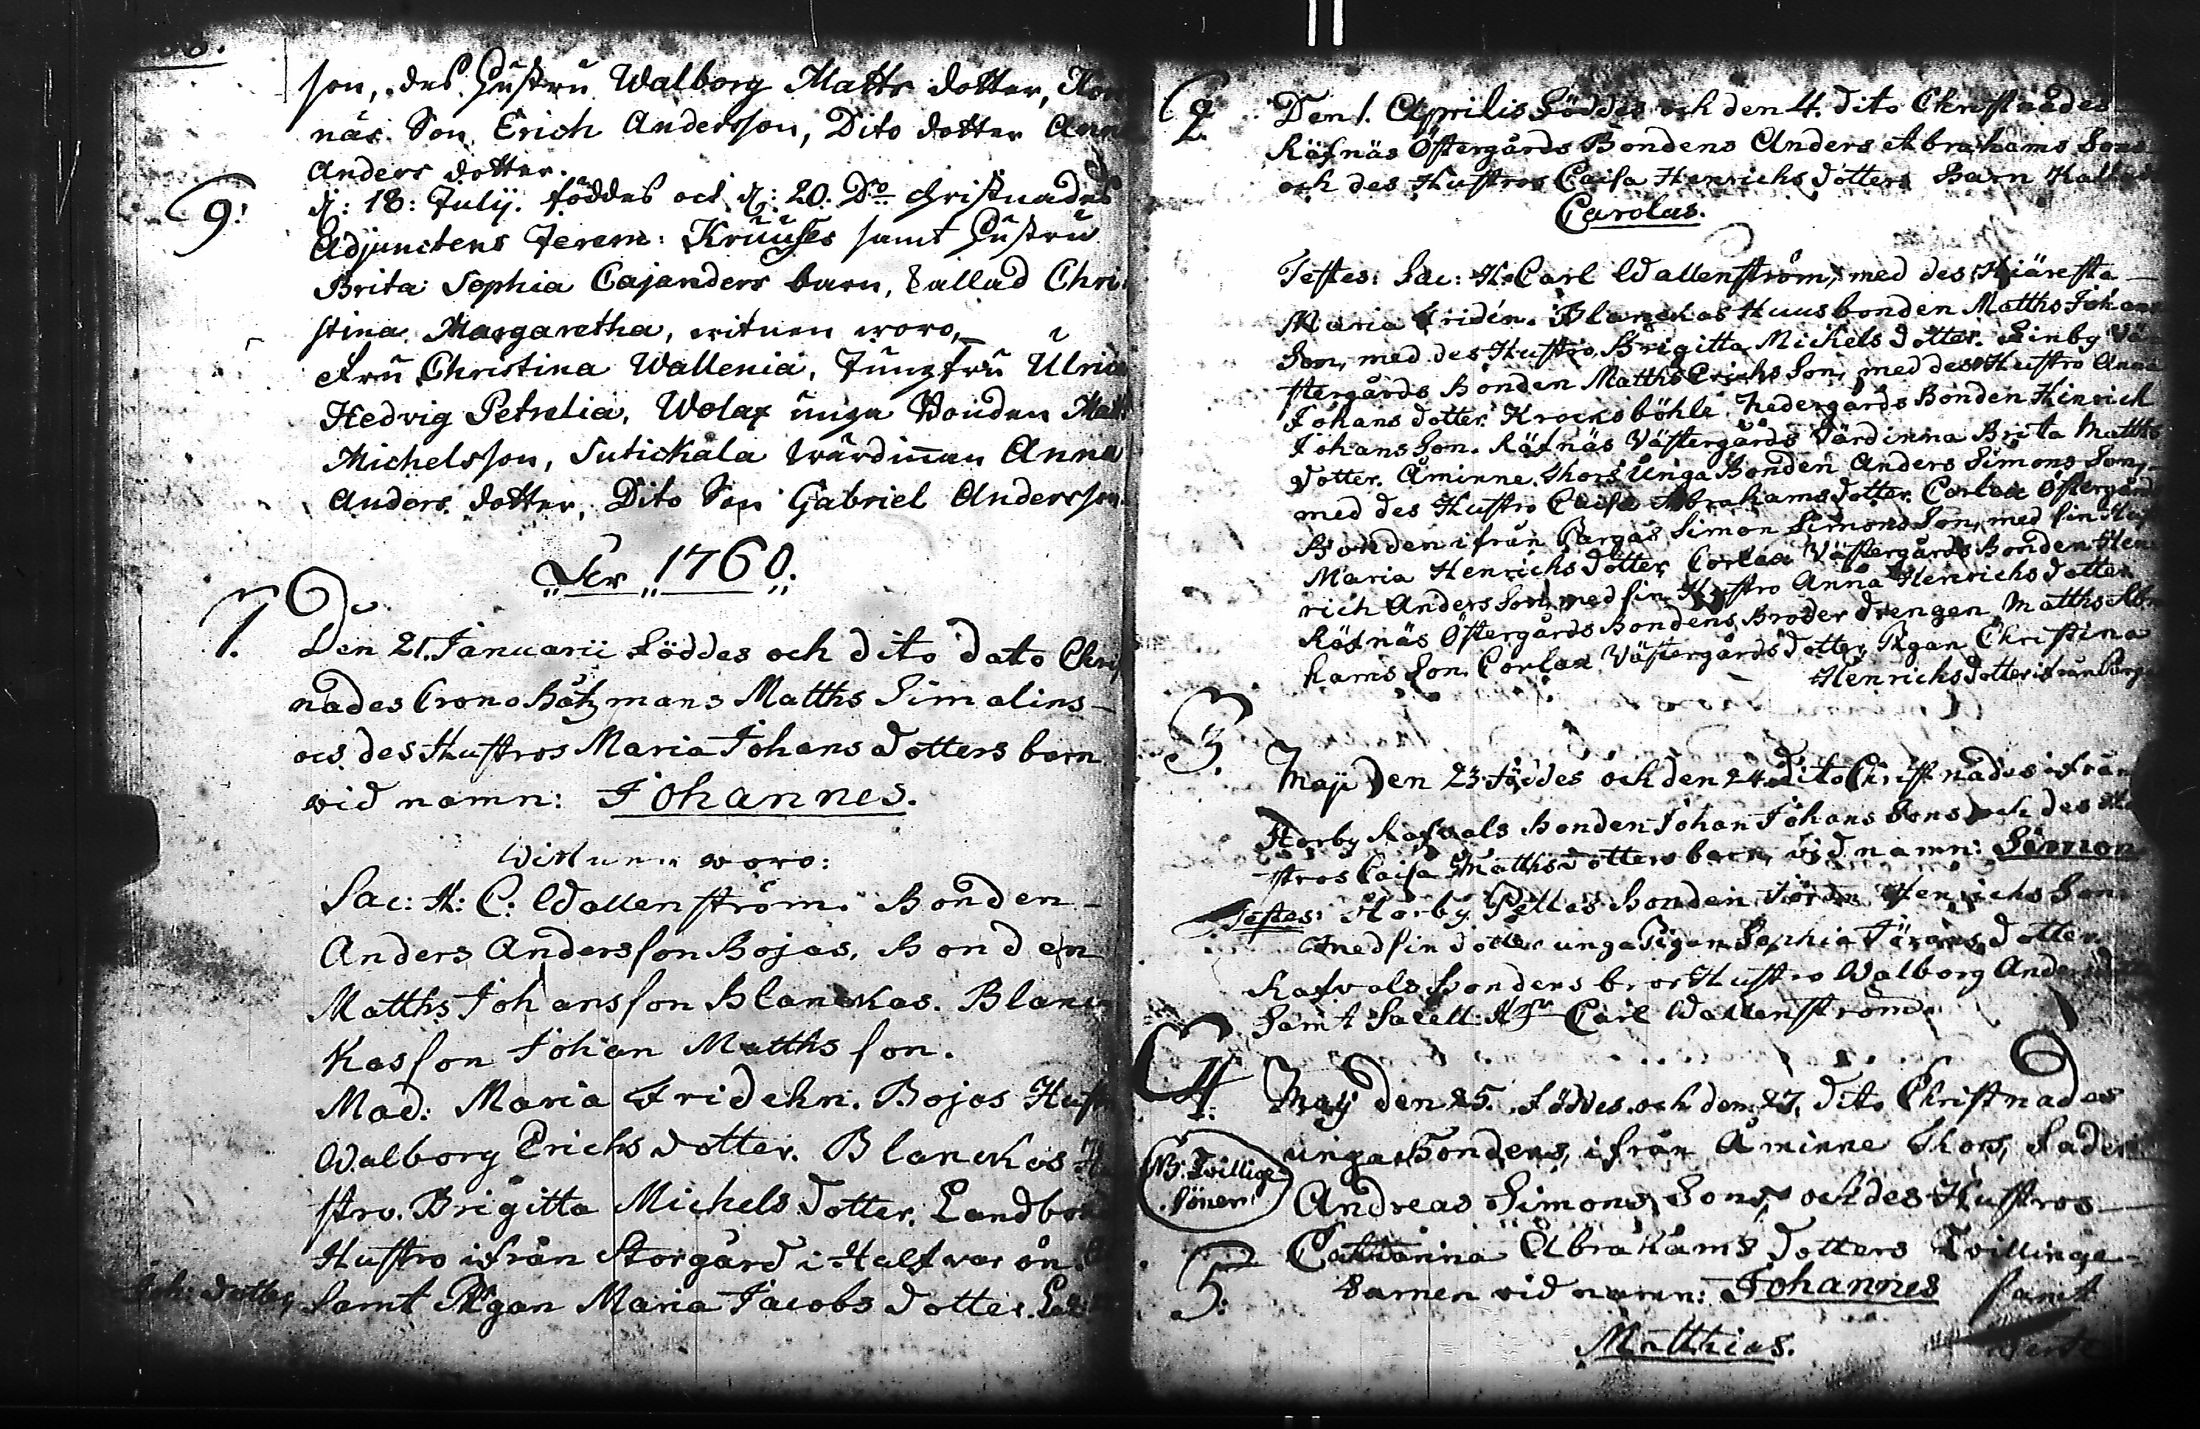 son, des Hustru Walborg Matts dotter,
näs Son Erich Andersson, Dito dotter
Anders dotter.
9. d: 18: Julij. föddes och d: 20. Do Christnades
Adjunctens Jerem: Kruuses samt Hustru
Brita Sophia Cajanders barn, kallad Chri-
stina Margaretha, witnen woro,
Fru Christina Wallenia, Jungfru
Hedvig Petrelia, Wolax unge Bonden
Michelsson, Sutickala wärdinnan Anna
Anders dotter, Dito Son Gabriel Andersson
1760.
1. Den 21. Januarii föddes och dito dato
nades Crono Båtzmans Matths Simalins
ocs des Hustros Maria Johans dotters barn
vid namn: Johannes.
Wittnen woro:
Sac: H: C: Wallenström. Bonden
Anders Andersson Bojas, Bonden
Matths Johansson Blanckas.
Kasson Johan Matths son.
Mad: Maria Fridehn. Bojas
Walborg Erichs dotter. Blanckas
stro. Brigitta Michels dotter.
Hustro ifrån Storgård i
Joh: dotter, Samt Pigan Maria Jacobs dotter.
2. Den 1. Aprilis Föddes och den 4. dito Christnades
Räfnäs Östergårds Bondens Anders Abrahams Sons
och des Hustros Caisa Henrichs dotters Barn
Carolus.
Testes: Sac: H: Carl Wallenström, med des Kiäresta
Maria Fridén. Blanckas Huusbonden Matths
Son, med des Hustro Brigitta Michels dotter. Finby
stergårds Bonden Matths Erichs Son, med des Hustro Anna
Johans dotter. Krocksböhle Nedergårds Bonden Hinrich
Johans Son. Räfnäs Västergårds Värdinna Brita Matths
dotter. Åminne Thors Unga Bonden Anders Simons Son,
med des Hustro Caisa Abrahams dotter. Corlax
Bonden ifrån Pargas Simon Simons Son, med sin
Maria Henrichs dotter, Corlax Västergårds Bonden Hen-
rich Anders Son, med sin Hustro Anna Henrichs dotter
Räfnäs Östergårds Bondens Broder drengen Matths Abra-
hams Son. Corlax Västergårds dotter, Pigan Christina
Henrichs dotter ifrån
3. Maji den 23 Föddes och den 24 dito Christnades ifrån
Norby Rafvals Bonden Johan Johans Sons och des
stros Caisa Matths dotters barn, vid namn: Simon
Testes: Norby Pellas Bonden Jöran Henrichs Son
med sin dotter unga Pigan Sophia Jörans dotter
Rafvals Bondens bror Hustro Walborg
Samt Sacell: Carl Wallenström.
4. Maij den 25. Föddes och den 27. dito Christnades
unga Bondens, ifrån Åminne Thors,
NB: Tvillinge
Söner!
Andreas Simons Sons, och des Hustros
5. Catharina Abrahams dotters Tvillinge
barnen vid namn: Johannes samt
Matthias.